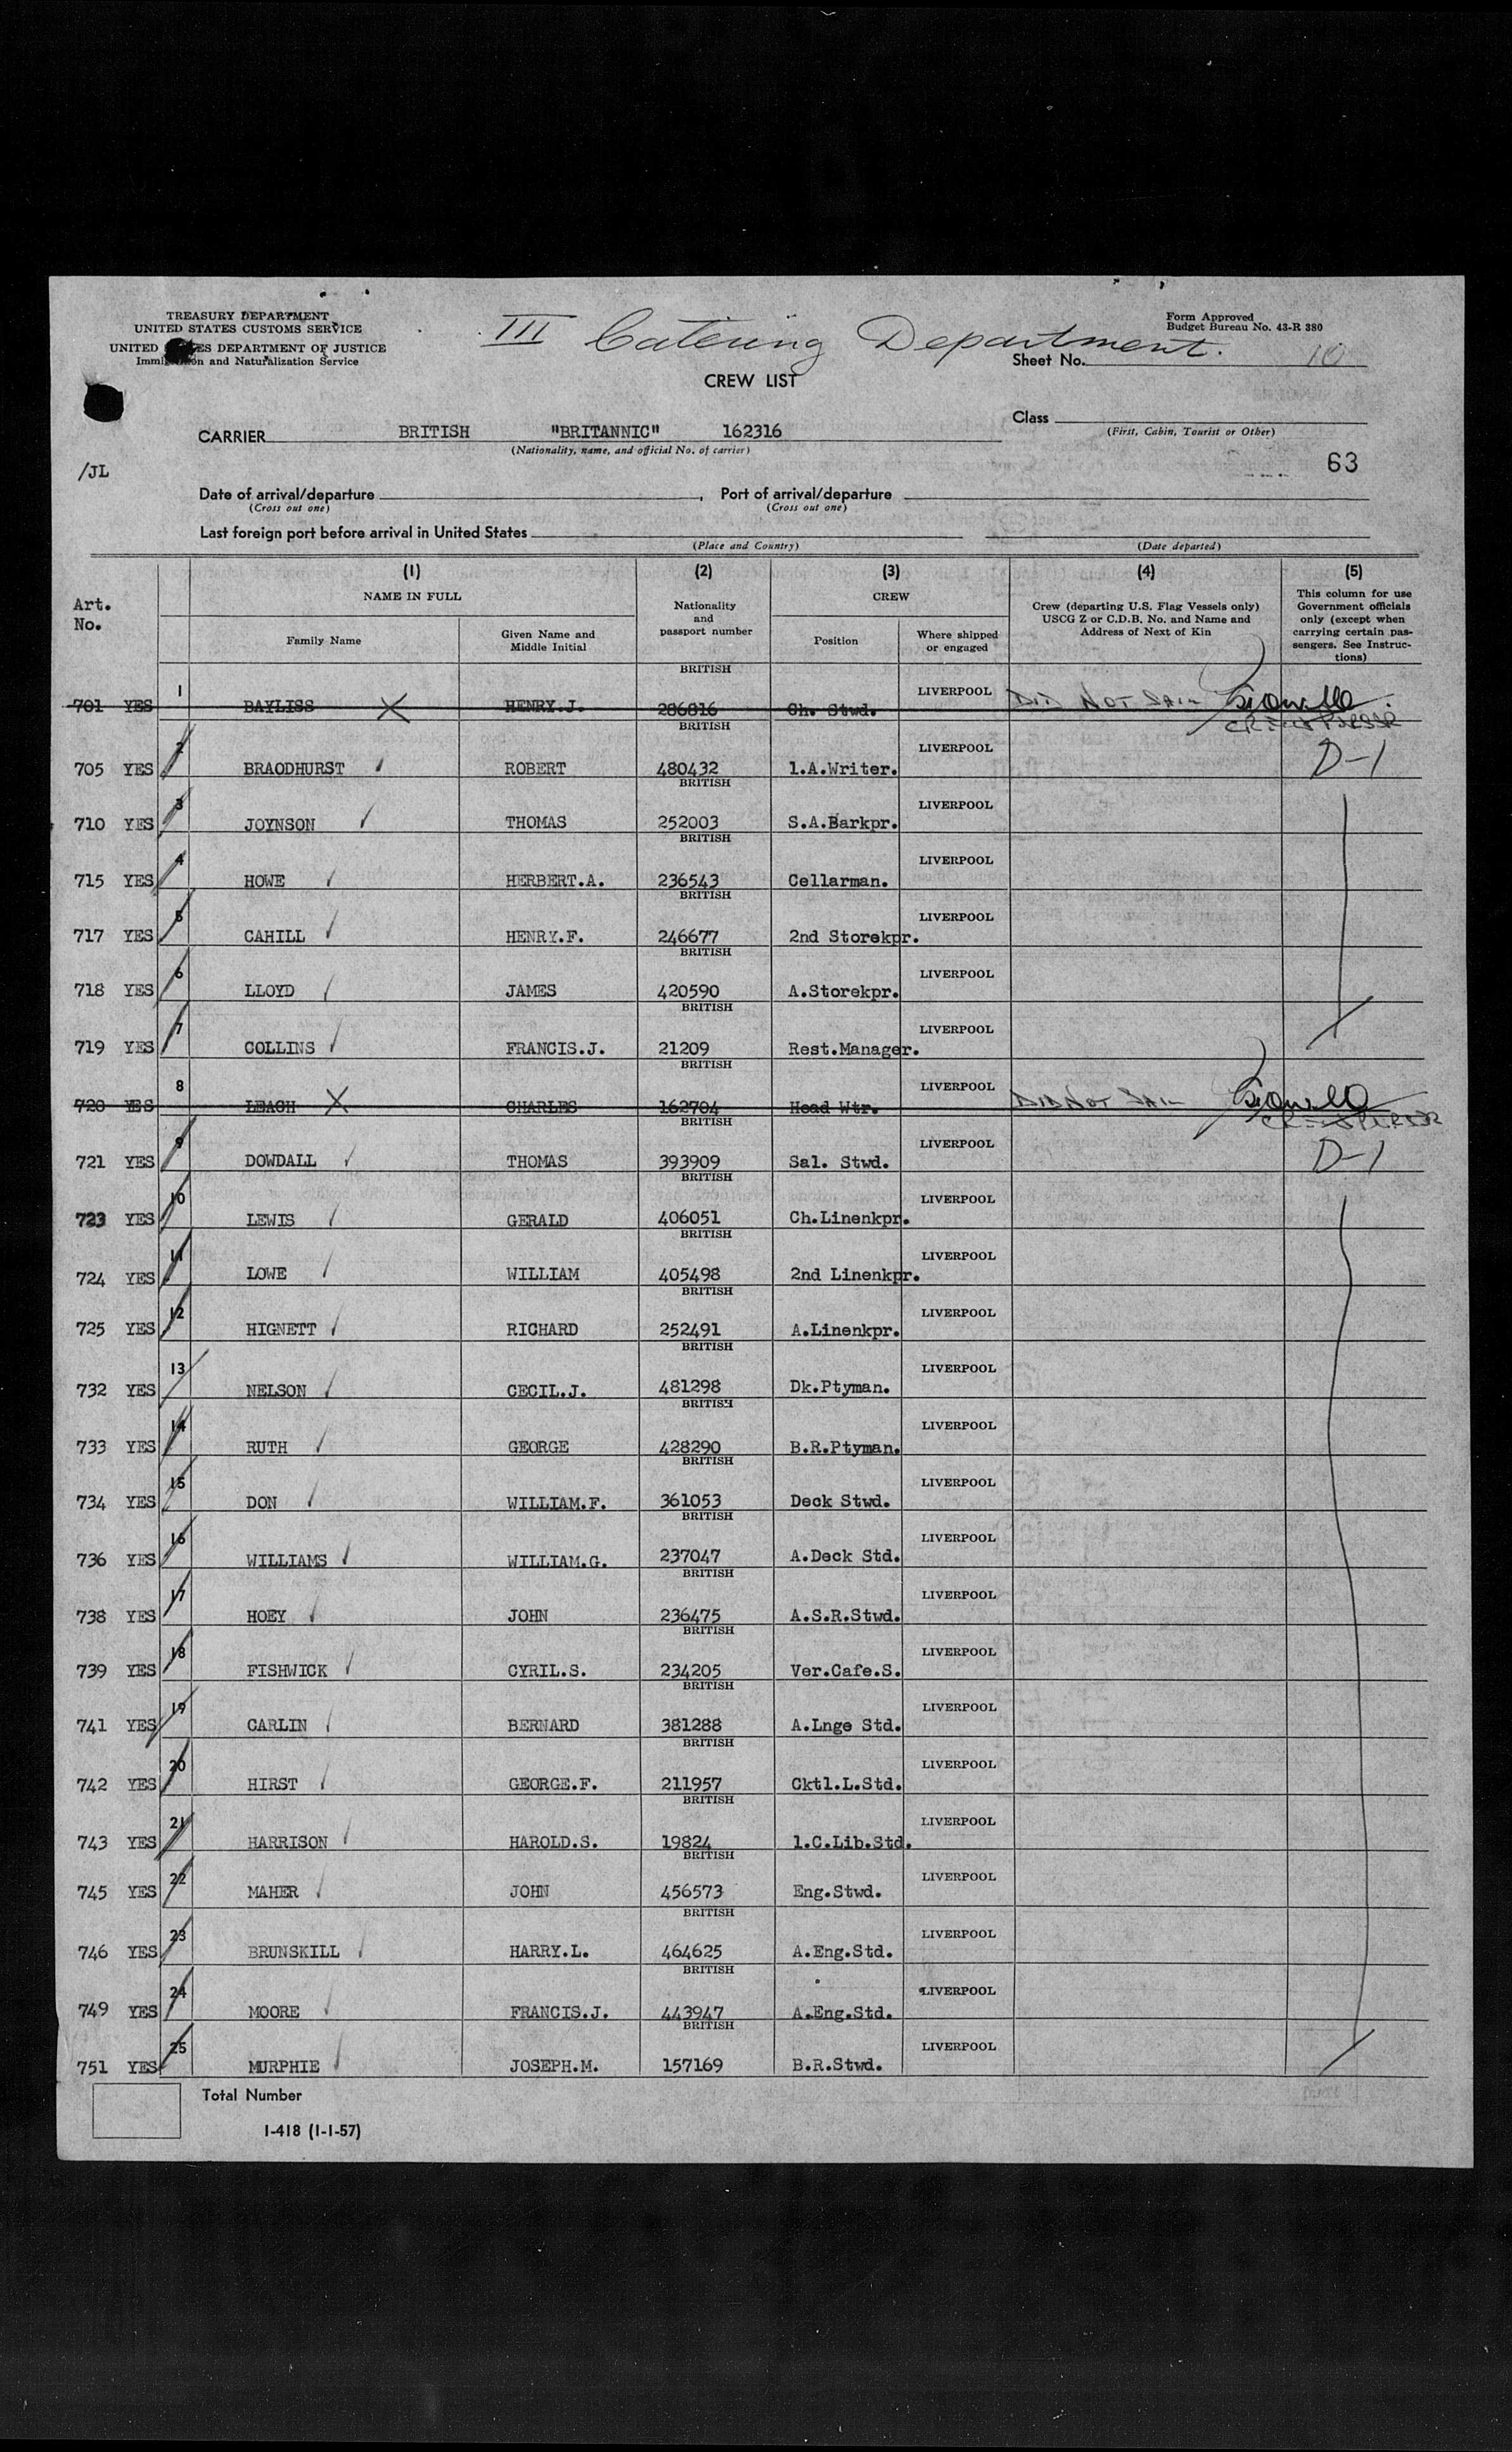 TREASURY DEPARTMENT
UNITED STATES CUSTOMS SERVICE
UNITED ES DEPARTMENT OF JUSTICE
Immi on and Naturalization Service
III Catering Department.
Form Approved
Budget Bureau No. 43-R 380
Sheet No. 10
CREW LIST
Class
(First, Cabin, Tourist or Other)
CARRIER BRITISH "BRITANNIC" 162316
(Nationality, name, and official No. of carrier)
/JL
63
Date of arrival/departure , Port of arrival/departure
(Cross out one) (Cross out one)
Last foreign port before arrival in United States
(Place and Country) (Date departed)
Art. No.
(1) NAME IN FULL
Family Name
Given Name and Middle Initial
(2) Nationality and passport number
(3) CREW
Position
Where shipped or engaged
(4) Crew (departing U.S. Flag Vessels only) USCG Z or C.D.B. No. and Name and Address of Next of Kin
(5) This column for use Government officials only (except when carrying certain passengers. See Instructions)
701 YES 1 BAYLISS X HENRY.J. BRITISH 286816 Ch. Stwd. LIVERPOOL DID NOT SAIL CREW PURSER
705 YES 2 BRAODHURST ROBERT BRITISH 480432 1.A.Writer. LIVERPOOL D-1
710 YES 3 JOYNSON THOMAS BRITISH 252003 S.A.Barkpr. LIVERPOOL
715 YES 4 HOWE HERBERT.A. BRITISH 236543 Cellarman. LIVERPOOL
717 YES 5 CAHILL HENRY.F. BRITISH 246677 2nd Storekpr. LIVERPOOL
718 YES 6 LLOYD JAMES BRITISH 420590 A.Storekpr. LIVERPOOL
719 YES 7 COLLINS FRANCIS.J. BRITISH 21209 Rest.Manager. LIVERPOOL
720 YES 8 LEACH X CHARLES BRITISH 162704 Head Wtr. LIVERPOOL DID NOT SAIL CREW PURSER
721 YES 9 DOWDALL THOMAS BRITISH 393909 Sal. Stwd. LIVERPOOL D-1
723 YES 10 LEWIS GERALD BRITISH 406051 Ch.Linenkpr. LIVERPOOL
724 YES 11 LOWE WILLIAM BRITISH 405498 2nd Linenkpr. LIVERPOOL
725 YES 12 HIGNETT RICHARD BRITISH 252491 A.Linenkpr. LIVERPOOL
732 YES 13 NELSON CECIL.J. BRITISH 481298 Dk.Ptyman. LIVERPOOL
733 YES 14 RUTH GEORGE BRITISH 428290 B.R.Ptyman. LIVERPOOL
734 YES 15 DON WILLIAM.F. BRITISH 361053 Deck Stwd. LIVERPOOL
736 YES 16 WILLIAMS WILLIAM.G. BRITISH 237047 A.Deck Std. LIVERPOOL
738 YES 17 HOEY JOHN BRITISH 236475 A.S.R.Stwd. LIVERPOOL
739 YES 18 FISHWICK CYRIL.S. BRITISH 234205 Ver.Cafe.S. LIVERPOOL
741 YES 19 CARLIN BERNARD BRITISH 381288 A.Lnge Std. LIVERPOOL
742 YES 20 HIRST GEORGE.F. BRITISH 211957 Cktl.L.Std. LIVERPOOL
743 YES 21 HARRISON HAROLD.S. BRITISH 19824 1.C.Lib.Std. LIVERPOOL
745 YES 22 MAHER JOHN BRITISH 456573 Eng.Stwd. LIVERPOOL
746 YES 23 BRUNSKILL HARRY.L. BRITISH 464625 A.Eng.Std. LIVERPOOL
749 YES 24 MOORE FRANCIS.J. BRITISH 443947 A.Eng.Std. LIVERPOOL
751 YES 25 MURPHIE JOSEPH.M. BRITISH 157169 B.R.Stwd. LIVERPOOL
Total Number
I-418 (1-1-57)